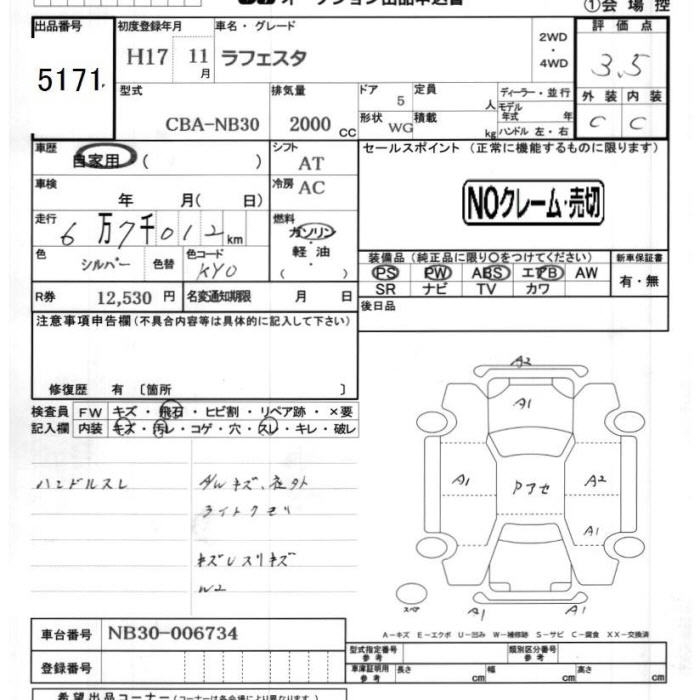 オークション出品申込書
①会場控
出品番号 初度登録年月 車名・グレード 評価点
5171
H17 11月 ラフェスタ 2WD・4WD 3.5
型式 排気量 ドア 定員 ディーラー・並行 外装 内装
CBA-NB30 2000CC 5 人 モデル年式 年 C C
形状 WG 積載 kg ハンドル 左・右
車歴 自家用 ( ) シフト AT セールスポイント (正常に機能するものに限ります)
車検 年 月( 日) 冷房 AC NOクレーム・売切
走行 6万7千012km 燃料 ガソリン・軽油・( )
色 シルバー 色替 色コード KY0 装備品 (純正品に限り○をつけてください) 新車保証書
PS PW ABS エアB AW 有・無
R券 12,530円 名変通知期限 月 日 SR ナビ TV カワ
注意事項申告欄 (不具合内容等は具体的に記入して下さい) 後日品
修復歴 有 〔箇所 〕
検査員 FW キズ・飛石・ヒビ割・リペア跡・×要
記入欄 内装 キズ・汚レ・コゲ・穴・スレ・キレ・破レ
ハンドルスレ
A/Wキズ、
ライトクモリ
W2
A2
A1
A1 A2
A1
スペア
A1 A1
A-キズ E-エクボ U-凹み W-補修跡 S-サビ C-腐食 XX-交換済
車台番号 NB30-006734
登録番号
型式指定番号 参考 類別区分番号 参考
車庫証明用 参考 長さ cm 幅 cm 高さ cm
希望出品コーナー (コーナーは各会場により異なります)